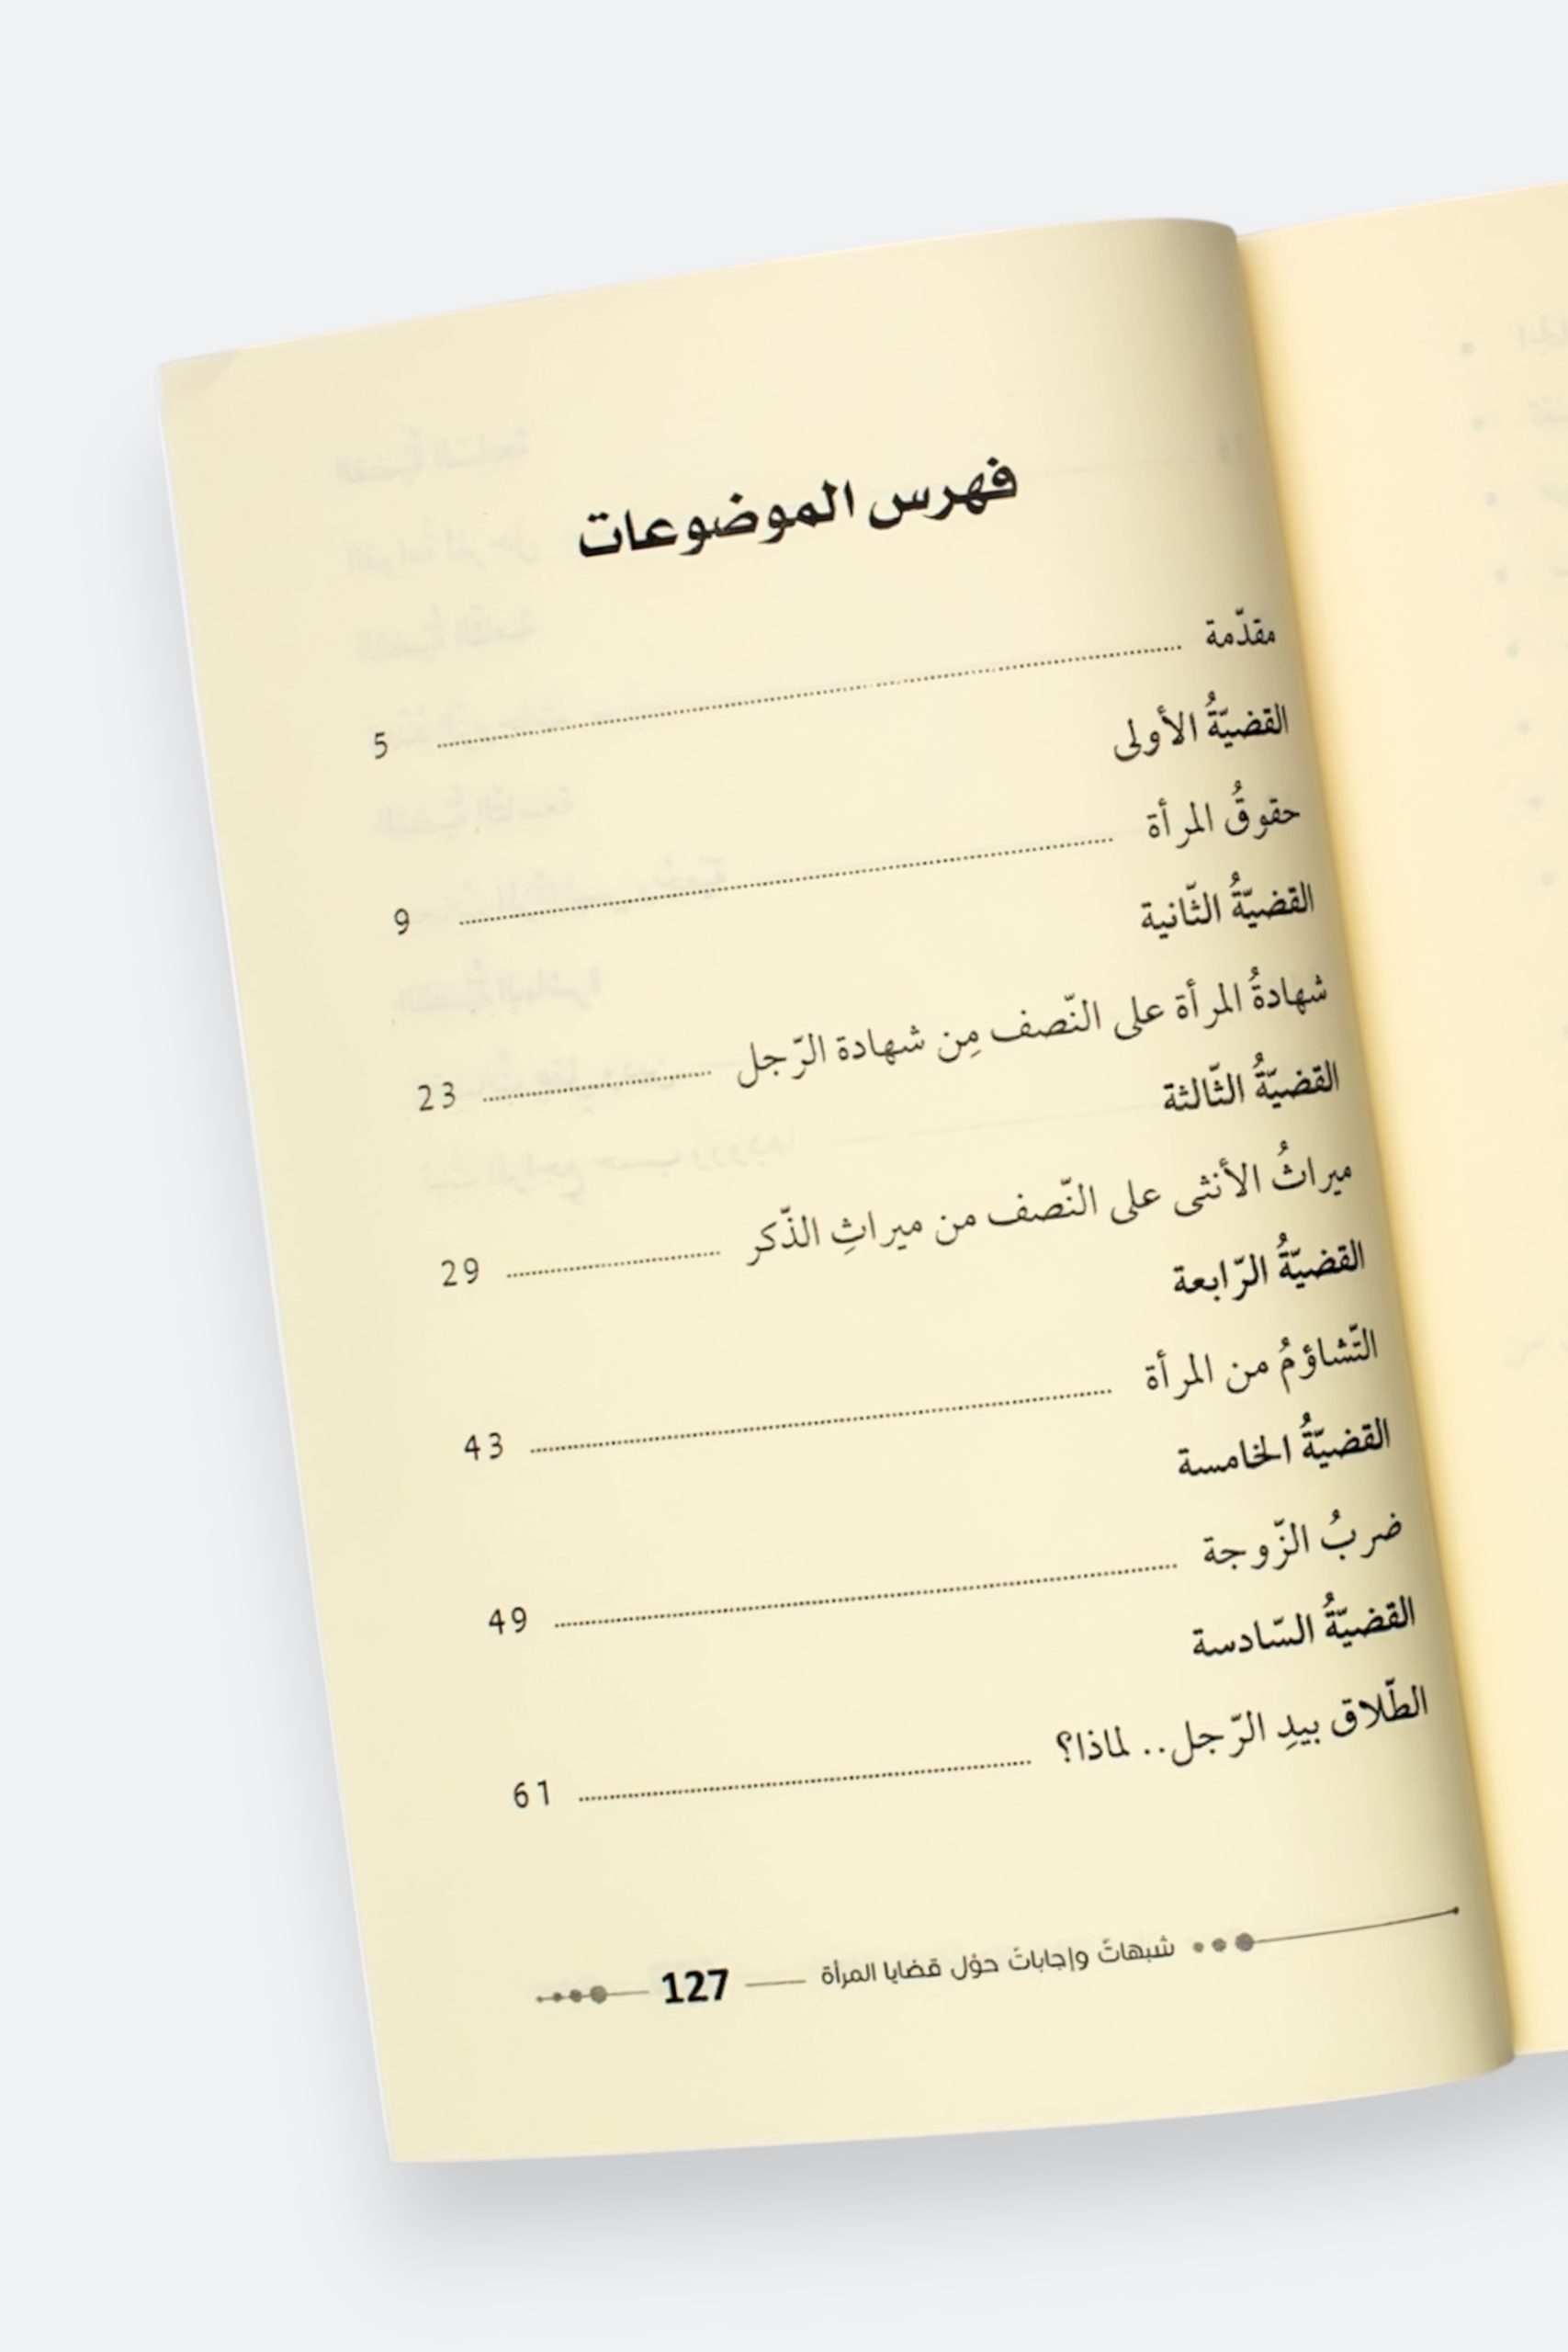 فهرس الموضوعات
مقدّمة ........ 5
القضيّةُ الأولى
حقوقُ المرأة ........ 9
القضيّةُ الثّانية
شهادةُ المرأة على النّصف مِن شهادة الرّجل ........ 23
القضيّةُ الثّالثة
ميراثُ الأنثى على النّصف من ميراثِ الذّكر ........ 29
القضيّةُ الرّابعة
التّشاؤمُ من المرأة ........ 43
القضيّةُ الخامسة
ضربُ الزّوجة ........ 49
القضيّةُ السّادسة
الطّلاق بيدِ الرّجل.. لماذا؟ ........ 61
شبهاتٌ وإجاباتٌ حوْل قضايا المرأة — 127